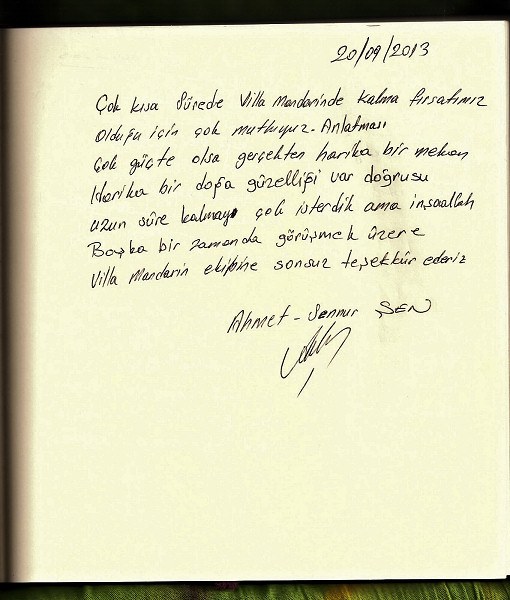 20/09/2013
Çok kısa Sürede Villa Mandarinde Kalma fırsatımız
Olduğu için çok mutluyuz. Anlatması
Çok güçte olsa gerçekten harika bir mekan
Harika bir doğa güzelliği var doğrusu
uzun süre kalmayı çok isterdik ama inşaallah
Başka bir zamanda görüşmek üzere
Villa Mandarin ekibine sonsuz teşekkür ederiz
Ahmet - Sennur ŞEN